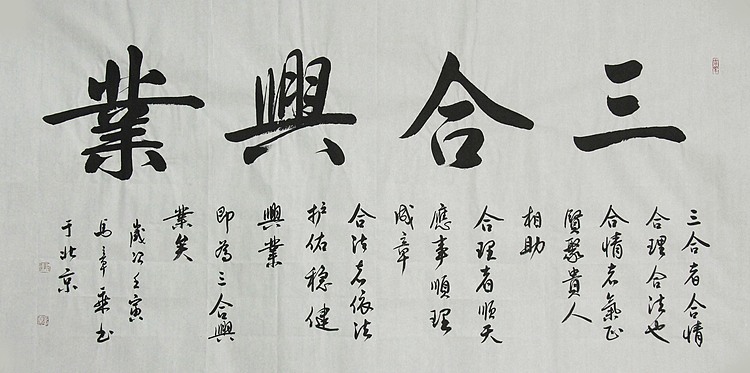 三合興業
三合者合情
合理合法也
合情者氣正
賢聚貴人
相助
合理者順天
應事順理
成章
合法者依法
护佑穩健
興業
即為三合興
業矣
歲次壬寅
馬章乘书
于北京